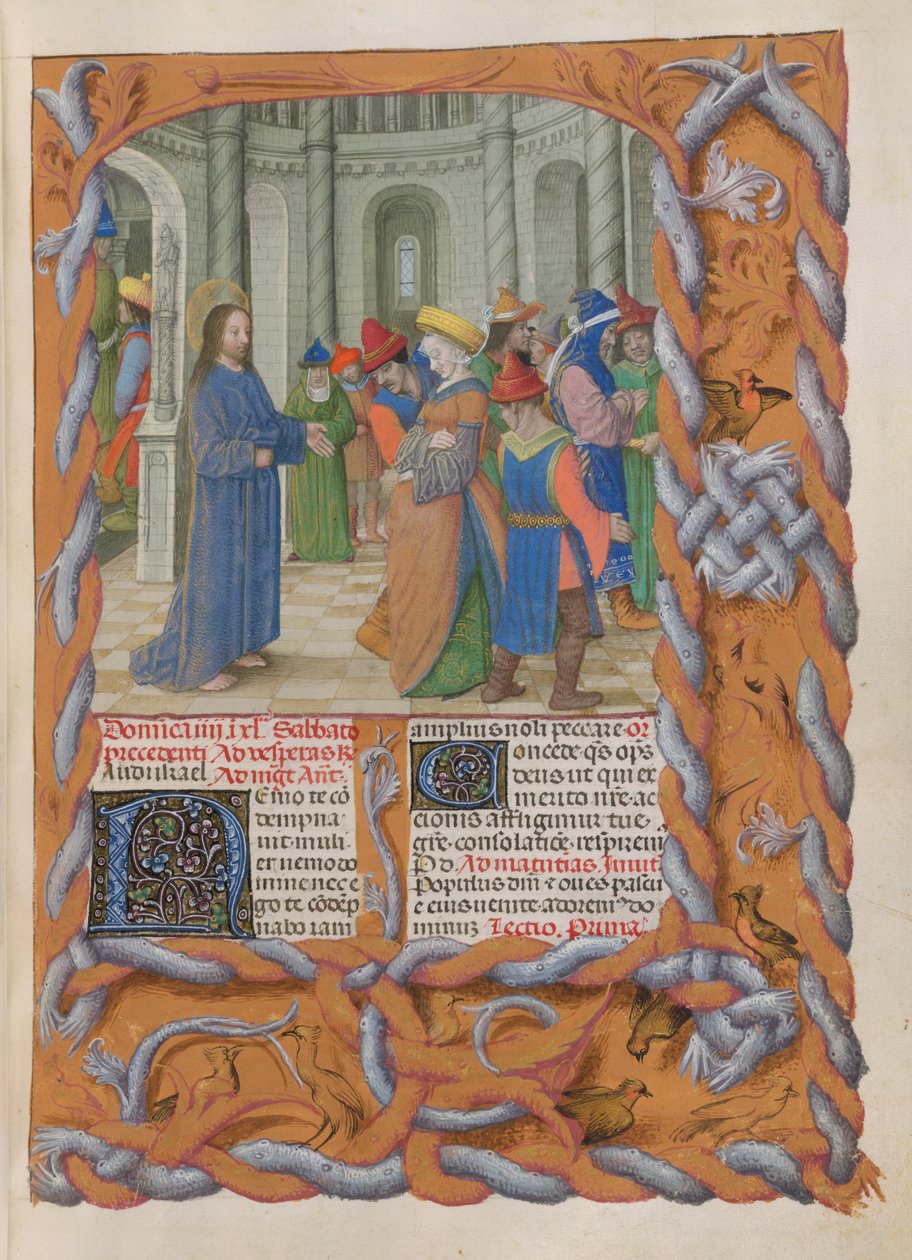 Domīca iiij. ixlᵉ Sabbato
precedenti Ad vesperas ℟
Audi israel Ad mgt̄ Ant̄.
Nemo te cō
dempna
uit muli
er nemo do
mine nec e
go te cōdēp
nabo iam
amplius noli peccare. or̄
Concede q̄s op̄s
deus ut qui ex
merito nr̄e ac
cionis affligimur tue.
grē. consolatiōe. respirem
P d. Ad matutīas. Inuit̄
Populus dnī ⁊ oues pascu
e eius uenite. adorem⁹ do
minuȝ Lectio. Prima